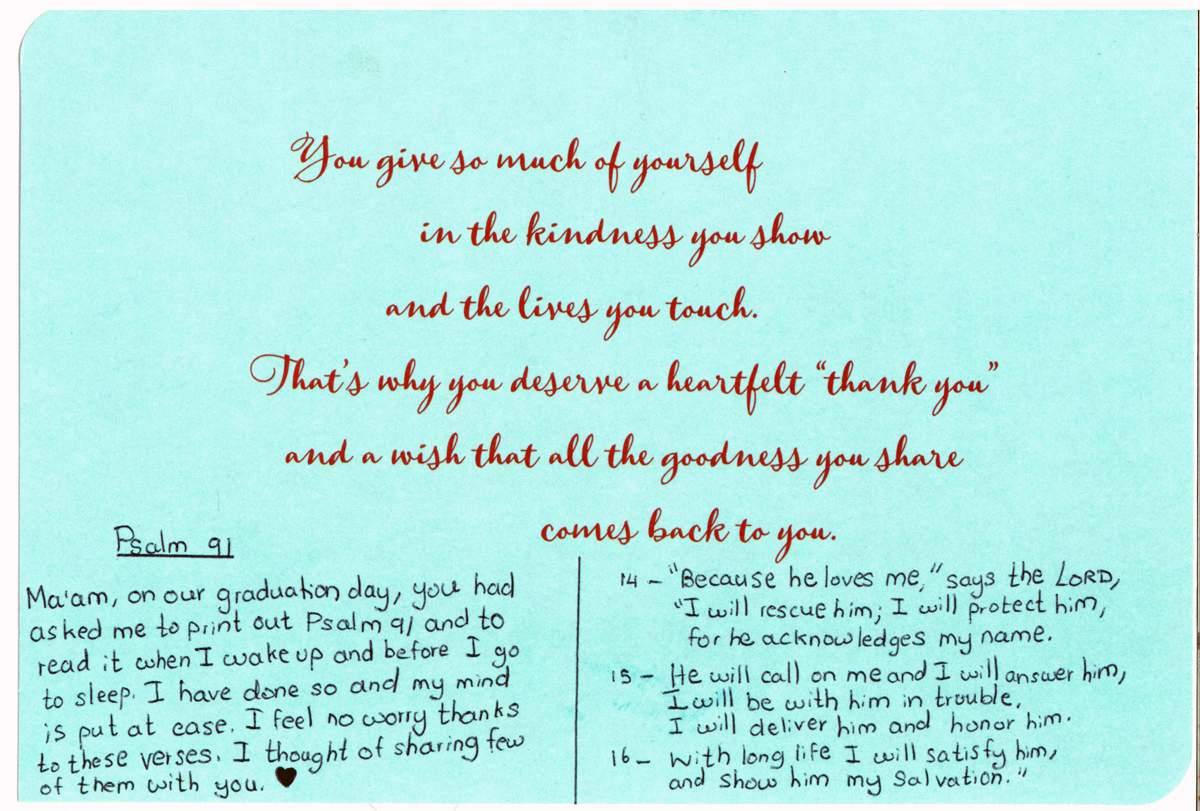 You give so much of yourself
in the kindness you show
and the lives you touch.
That's why you deserve a heartfelt "thank you"
and a wish that all the goodness you share
comes back to you.
Psalm 91
Ma'am, on our graduation day, you had
asked me to print out Psalm 91 and to
read it when I wake up and before I go
to sleep. I have done so and my mind
is put at ease. I feel no worry thanks
to these verses. I thought of sharing few
of them with you. ♥
14 - "Because he loves me," says the LORD,
"I will rescue him; I will protect him,
for he acknowledges my name.
15 - He will call on me and I will answer him,
I will be with him in trouble,
I will deliver him and honor him.
16 - With long life I will satisfy him,
and show him my Salvation."